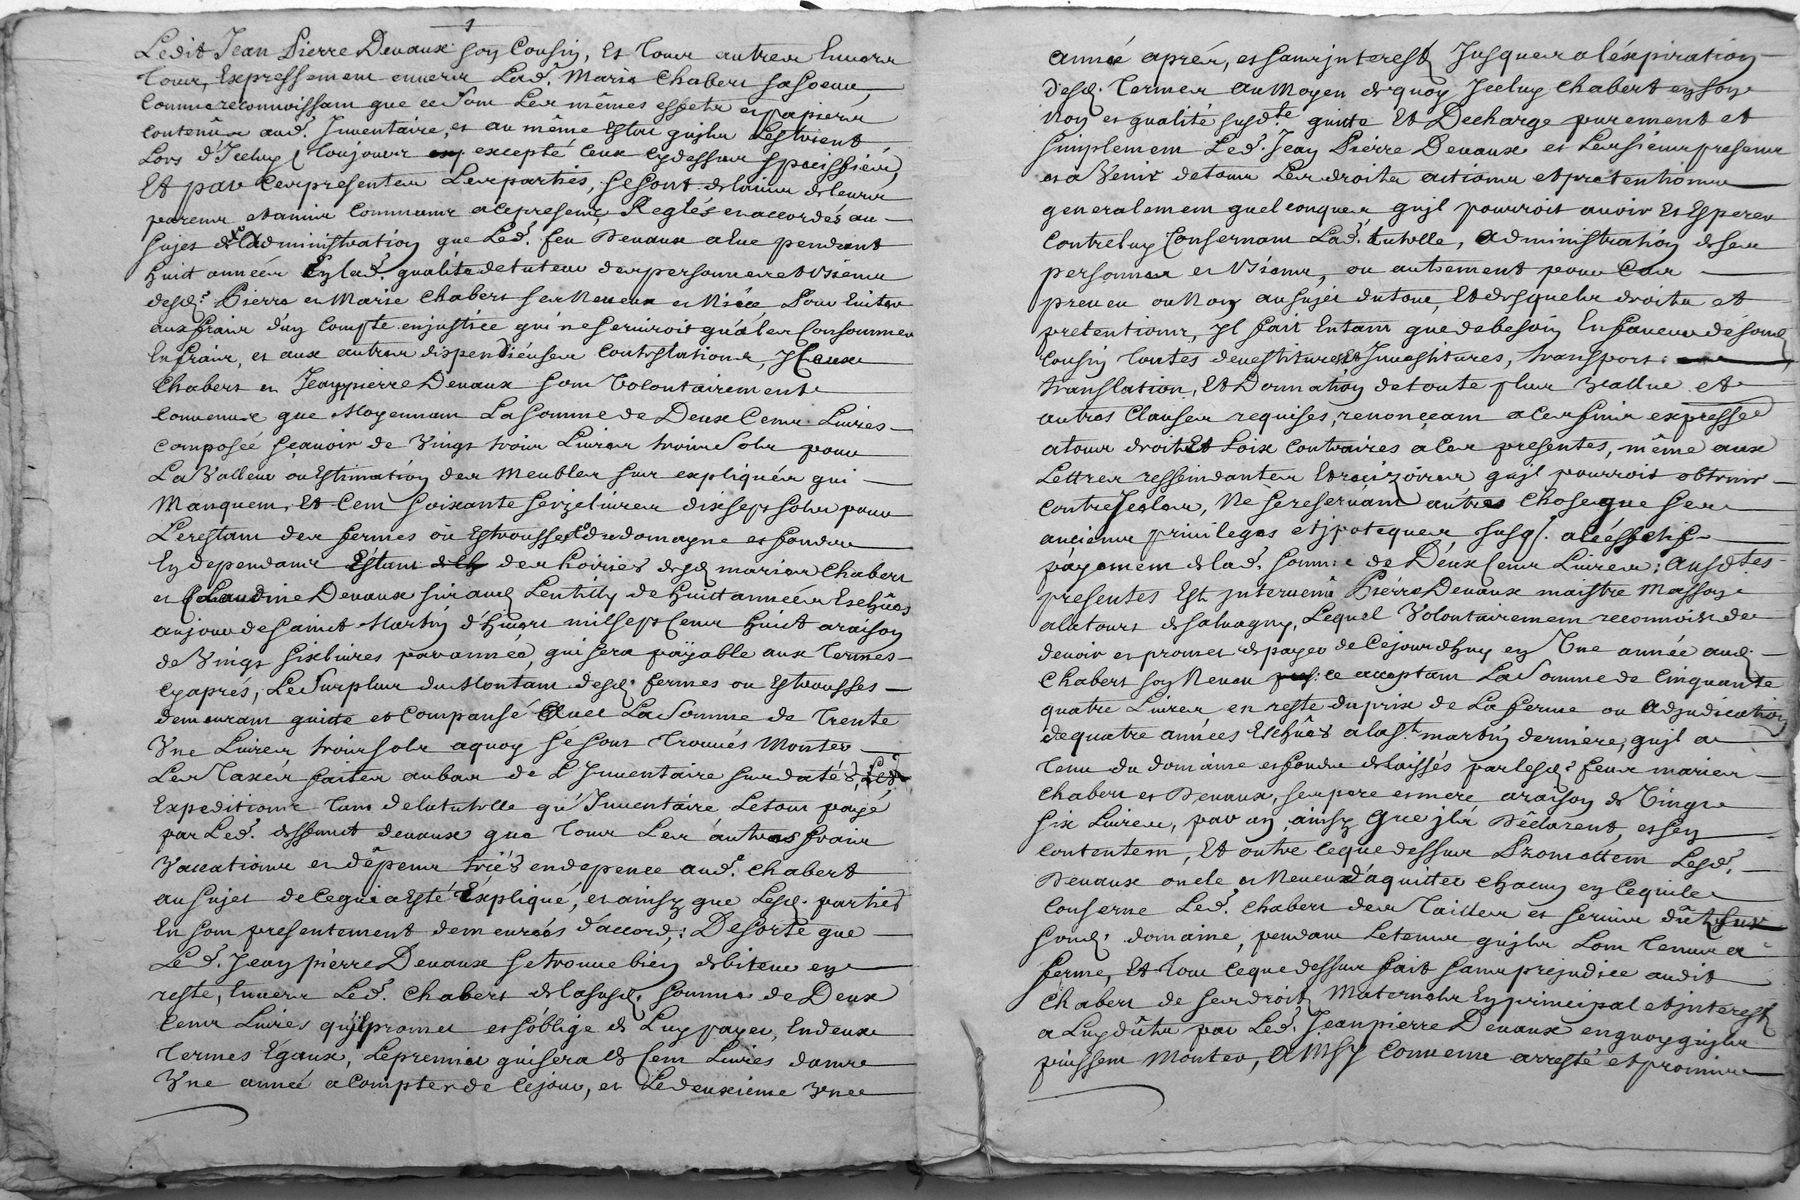 1
Ledit Jean Pierre Devaux son Cousin, Et Tous autres Envers
Tous, Expressement envers Lad.e Marie Chabert sa soeur,
Comme reconnoissant que ce sont Les mêmes effets et papiers
contenûs aud. Inventaire, et au même Estat qu'ils Estoient
Lors d'Iceluy Toujours excepté Ceux cy dessus speciffiéés,
Et par Ces presentes Les parties, se sont de laduis de leurs
parens et amis communs a ce presens, Reglés et accordés au
sujet de Ladministration que Led. feu Devaux a Eue pendant
huict années En lad. qualité de tuteur des personnes et biens
desd. Pierre et Marie Chabert ses Neveux et Niéce Pour Eviter
aux frais d'un Compte en justice qui ne serviroit qu'a les Consommer
En frais, et aux autres dispendieuses Contestations, Iceux
Chabert et Jean pierre Devaux sont Volontairement
Convenus que Moyennant La somme de Deux Cens Livres
composée sçavoir de Vingt trois Livres trois sols pour
La Valleur ou Estimation des Meubles sus expliqués qui
Manquent, Et Cent soixante seize livres dixsept sols pour
L'erestant des fermes ou Estrousses du domayne et fonds
En dependans Estant des hoiries desd. mariés Chabert
et Claudine Devaux sis aud. Lentilly de huict années Eschûes
au jour de saint Martin d'hiver mil sept Cens huict a raison
de Vingt six livres par année, qui sera payable aux Termes
cy aprés, Le Surplus du Montant desd. fermes ou Estrousses
demeurant quitte et compansé avec La Somme de Trente
Une Livres trois sols a quoy se sont trouvés Monter
Les Taxes faites au bas de L'Inventaire sus datés, Led.
Expeditions tant de la tutelle qu'Inventaire Le tout payé
par Led. deffunt devaux que tous Les autres frais
Vaccations et dêpens aud. Chabert
au sujet de ce qui a Esté Expliqué, et ainsy que Lesd. parties
En sont presentement demeurées d'accord; De sorte que
Led. Jean pierre Devaux se trouve bien debiteur en
reste, Envers Led. Chabert de la susd. somme de Deux
Cens Livres qu'il promet et s'oblige de Luy payer, En deux
Termes Egaux, Le premier qui sera de Cent Livres dans
Une année a compter de Ce jour, et Le deuxieme Une
année aprés, et sans interest Jusques a l'expiration
desd. Termes au Moyen de quoy Iceluy Chabert en son
Nom et qualité susd.te quitte Et Decharge purement et
simplement Led. Jean Pierre Devaux et Les siens presens
et a Venir de tous Les droits actions et pretentions
generalement quelconques qu'il pourroit avoir Et Esperer
Contre luy Consernant Lad. tutelle, administration de ses
personnes et biens, ou autrement pour Cas
preveu ou Non au sujet du tout, Et desquels droits et
pretentions, Il fait En tant que de besoin En faveur de sond.
Cousin Toutes devestitures Et Investitures, transport
translation, Et Donnation de toute plus Vallue et
autres Clauses requises, renonçeant a Ces fins expressé
a tous droits Et Loix Contraires a Ces presentes, même aux
Lettres ressindantes Et rescizoires qu'il pourroit obtenir
contre Icelles, Ne se reservant autres chose que ses
anciens privileges et ipoteques Jusq. a l'éffectif
payement de lad. somme de Deux Cens Livres; Ausd.tes
presentes Est intervenû Pierre Devaux maistre Masson
a la tour de salvagny, Lequel Volontairement reconnoist de
devoir et promet de payer de Ce jourdhuy en Une année aud.
Chabert son Neveu ce acceptant La Somme de Cinquante
quatre Livres en reste du prix de La ferme ou adjudication
de quatre années Eschûes a la S.t martin derniere, qu'il a
tenu du domaine et fonds delaissés par lesd. feus mariés
Chabert et Devaux, ses pere et mere a raison de Vingt
six Livres, par an, ainsy que ils Déclarent, et s'en
contentent, Et outre ce que dessus Promettent Lesd.
Devaux oncle et Neveu d'aquitter chacun en ce qui le
Conserne Led. Chabert des Tailles et servis dûts sur
sond. domaine, pendant Le tems qu'ils L'ont Tenu a
ferme, Et Tout ce que dessus fait sans prejudice audit
Chabert de ses droits Maternels En principal et interest
a Luy dûts par Led. Jean pierre Devaux en quoy qu'ils
puissent Monter, Ainsy convenu arresté et promis